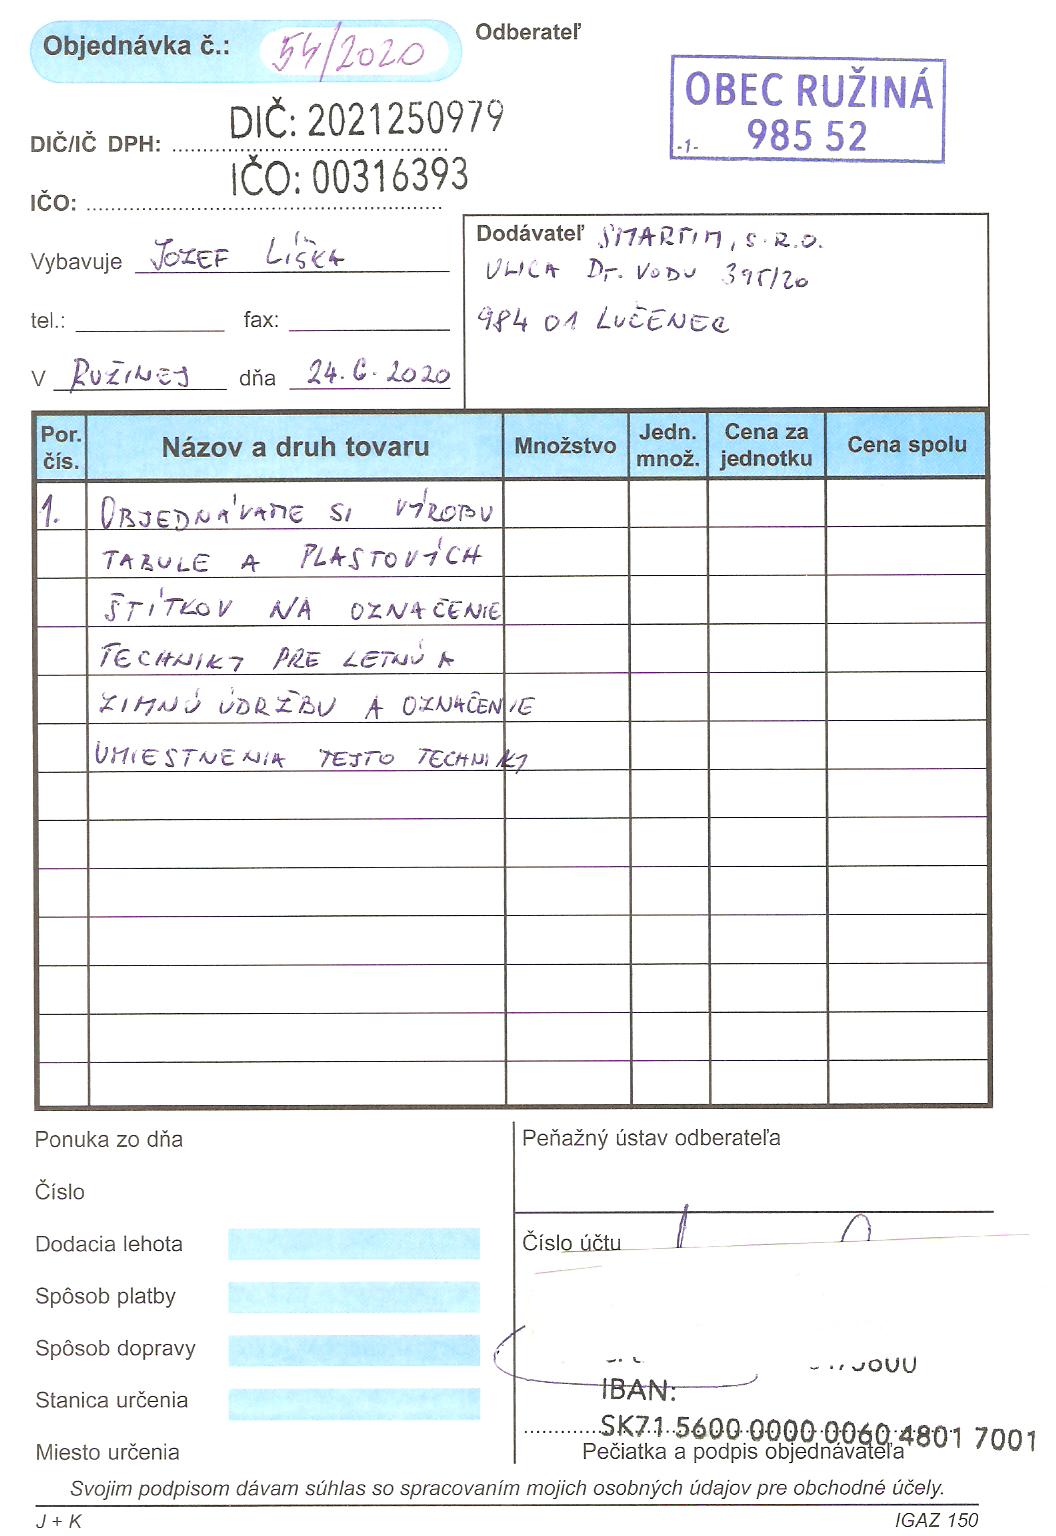 Objednávka č.: 54/2020
Odberateľ
OBEC RUŽINÁ
985 52
-1-
DIČ/IČ DPH: DIČ: 2021250979
IČO: IČO: 00316393
Vybavuje JOZEF LÍŠKA
tel.: fax:
V RUŽINEJ dňa 24.6.2020
Dodávateľ SMARTIM, S.R.O.
ULICA Dr. VODU 395/20
984 01 LUČENEC
Por. čís. Názov a druh tovaru Množstvo Jedn. množ. Cena za jednotku Cena spolu
1. OBJEDNÁVAME SI VÝROBU
TABULE A PLASTOVÝCH
ŠTÍTKOV NA OZNAČENIE
TECHNIKY PRE LETNÚ A
ZIMNÚ ÚDRŽBU A OZNAČENIE
UMIESTNENIA TEJTO TECHNIKY
Ponuka zo dňa
Číslo
Dodacia lehota
Spôsob platby
Spôsob dopravy
Stanica určenia
Miesto určenia
Peňažný ústav odberateľa
Číslo účtu
IBAN:
SK71 5600 0000 0060 4801 7001
Pečiatka a podpis objednávateľa
Svojim podpisom dávam súhlas so spracovaním mojich osobných údajov pre obchodné účely.
J + K IGAZ 150